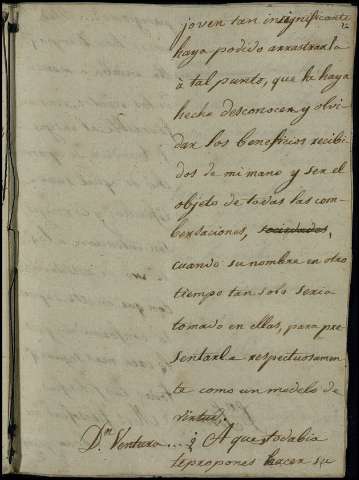 joven tan insignificante
haya podido arrastrarla
à tal punto, que la haya
hecho desconocer y olvi-
dar los beneficios recibi-
dos de mi mano y ser el
objeto de todas las com-
bersaciones, sociedades,
cuando su nombre en otro
tiempo tan solo seria
tomado en ellas, para pre-
sentarla respectuosamen-
te como un modelo de
virtud.
Dn Ventura... ¿A que todabia
te propones hacer su